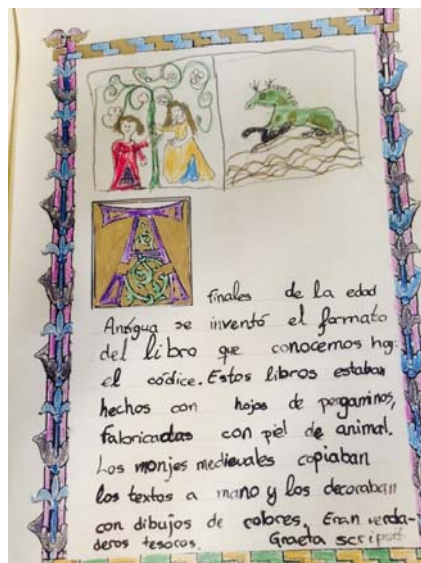 A finales de la edad
Antigua se inventó el formato
del libro que conocemos hoy:
el códice. Estos libros estaban
hechos con hojas de pergaminos,
fabricadas con piel de animal.
Los monjes medievales copiaban
los textos a mano y los decoraban
con dibujos de colores. Eran verda-
deros tesoros. Graeta scripsit